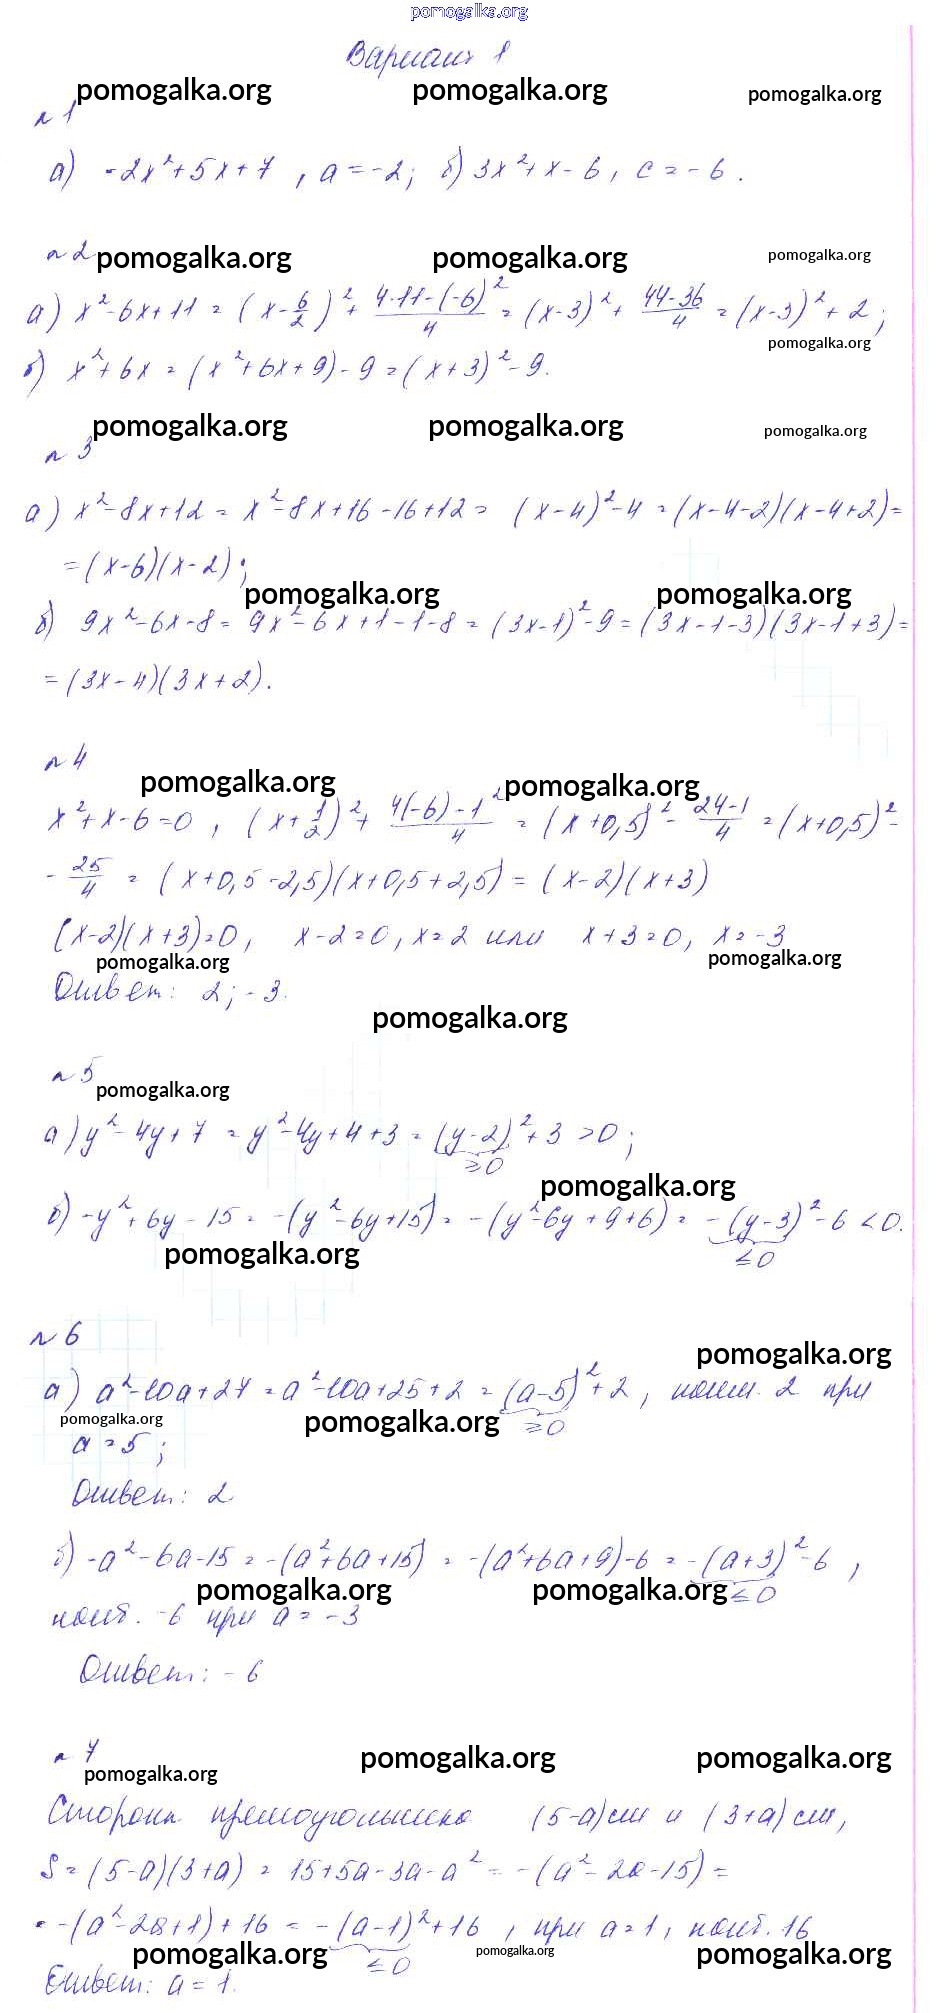 pomogalka.org
Вариант 1
pomogalka.org pomogalka.org pomogalka.org
№1
а) -2x²+5x+7, a=-2; б) 3x²+x-6, c=-6.
№2 pomogalka.org pomogalka.org pomogalka.org
а) x²-6x+11 = (x-6/2)² + (4·11-(-6)²)/4 = (x-3)² + (44-36)/4 = (x-3)²+2;
pomogalka.org
б) x²+6x = (x²+6x+9)-9 = (x+3)²-9.
pomogalka.org pomogalka.org pomogalka.org
№3
а) x²-8x+12 = x²-8x+16-16+12 = (x-4)²-4 = (x-4-2)(x-4+2) =
= (x-6)(x-2);
pomogalka.org pomogalka.org
б) 9x²-6x-8 = 9x²-6x+1-1-8 = (3x-1)²-9 = (3x-1-3)(3x-1+3) =
= (3x-4)(3x+2).
№4
pomogalka.org pomogalka.org
x²+x-6=0, (x+1/2)² + (4(-6)-1²)/4 = (x+0,5)² - (24-1)/4 = (x+0,5)² -
- 25/4 = (x+0,5-2,5)(x+0,5+2,5) = (x-2)(x+3)
(x-2)(x+3)=0, x-2=0, x=2 или x+3=0, x=-3
pomogalka.org pomogalka.org
Ответ: 2; -3.
pomogalka.org
№5
pomogalka.org
а) y²-4y+7 = y²-4y+4+3 = (y-2)²+3 >0;
≥0
pomogalka.org
б) -y²+6y-15 = -(y²-6y+15) = -(y²-6y+9+6) = -(y-3)²-6 <0.
pomogalka.org ≤0
№6
pomogalka.org
а) a²-10a+27 = a²-10a+25+2 = (a-5)²+2, наим. 2 при
pomogalka.org pomogalka.org ≥0
a=5;
Ответ: 2
б) -a²-6a-15 = -(a²+6a+15) = -(a²+6a+9)-6 = -(a+3)²-6,
pomogalka.org pomogalka.org ≤0
наиб. -6 при a=-3
Ответ: -6
№7 pomogalka.org pomogalka.org
pomogalka.org
Сторона прямоугольника (5-a)см и (3+a)см,
S=(5-a)(3+a) = 15+5a-3a-a² = -(a²-2a-15) =
= -(a²-2a+1)+16 = -(a-1)²+16, при a=1, наиб. 16
pomogalka.org ≤0 pomogalka.org pomogalka.org
Ответ: a=1.